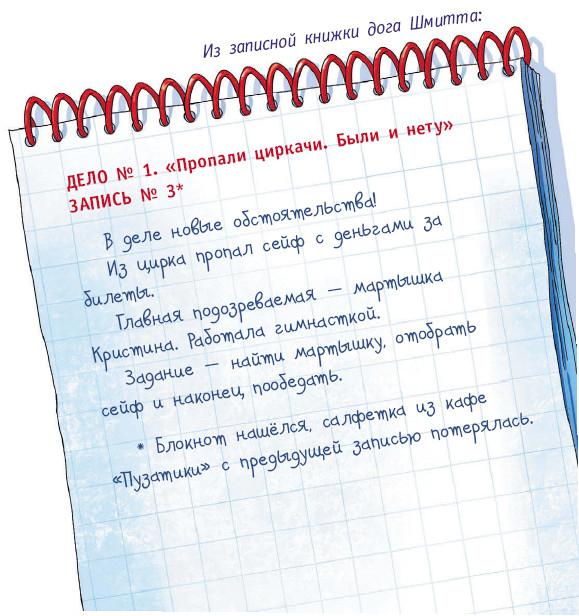 Из записной книжки дога Шмитта:
ДЕЛО № 1. «Пропали циркачи. Были и нету»
ЗАПИСЬ № 3*
В деле новые обстоятельства!
Из цирка пропал сейф с деньгами за
билеты.
Главная подозреваемая — мартышка
Кристина. Работала гимнасткой.
Задание — найти мартышку, отобрать
сейф и наконец пообедать.
* Блокнот нашёлся, салфетка из кафе
«Пузатики» с предыдущей записью потерялась.